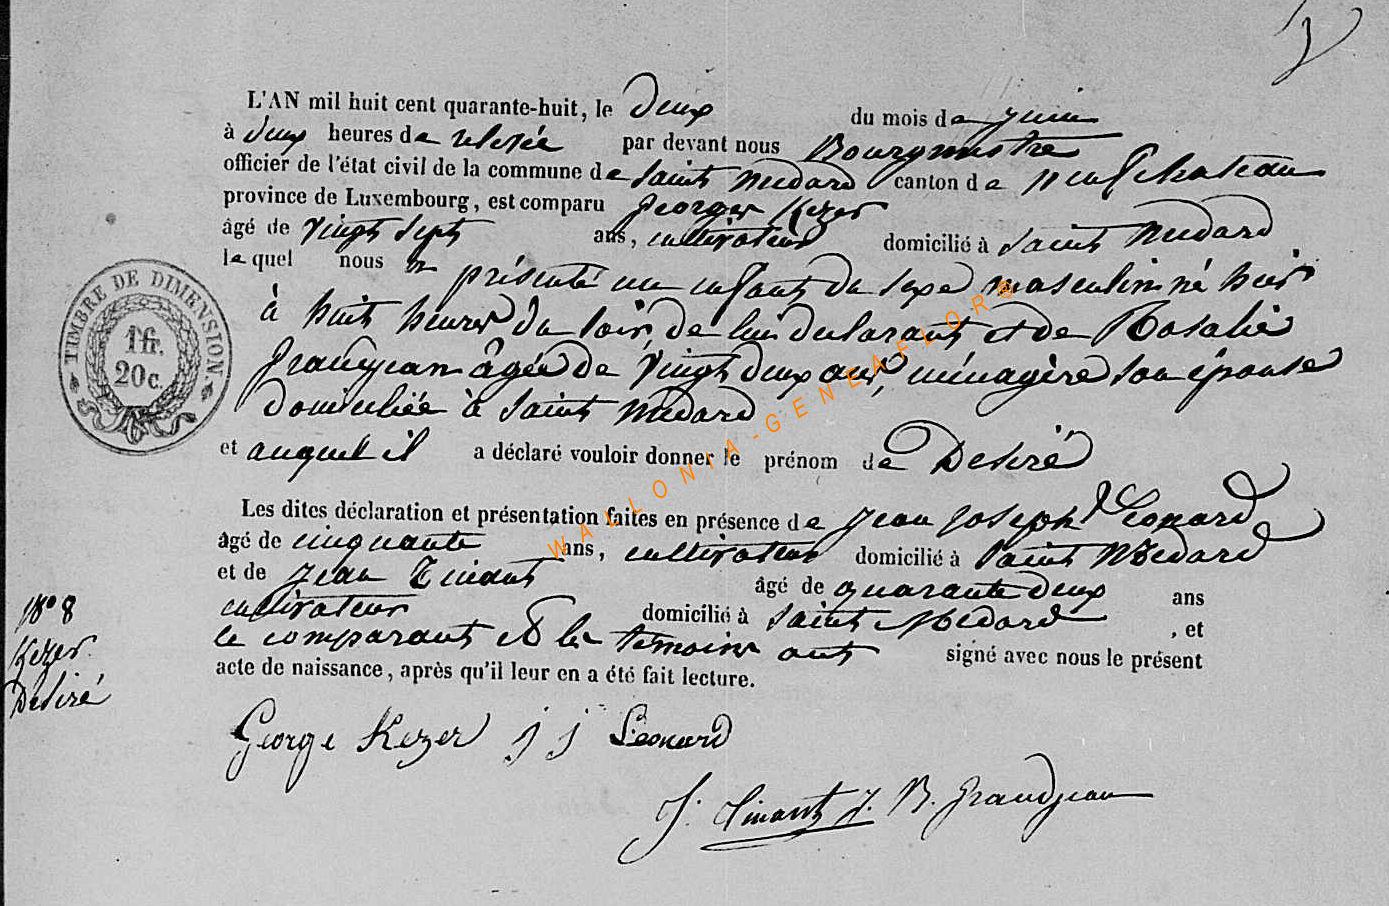 L'AN mil huit cent quarante-huit, le deux du mois de juin
à deux heures de relevée par devant nous Bourgmestre
officier de l'état civil de la commune de Saint Médard canton de Neufchateau
province de Luxembourg, est comparu Georges Kezer
âgé de vingt sept ans, cultivateur domicilié à Saint Médard
lequel nous a présenté un enfant du sexe masculin né hier
à huit heures du soir, de lui déclarant et de Rosalie
Grandjean âgée de vingt deux ans, ménagère son épouse
domiciliée à Saint Médard
et auquel il a déclaré vouloir donner le prénom de Désiré
Les dites déclaration et présentation faites en présence de Jean Joseph Léonard
âgé de cinquante ans, cultivateur domicilié à Saint Médard
et de Jean Tinant âgé de quarante deux ans
cultivateur domicilié à Saint Médard, et
le comparant et les témoins ont signé avec nous le présent
acte de naissance, après qu'il leur en a été fait lecture.
George Kezer j j Léonard
J. Tinant J. B. Grandjean
N° 8
Kezer
Désiré
TIMBRE DE DIMENSION
1 fr.
20 c.
WALLONIA-GENEAFLORE